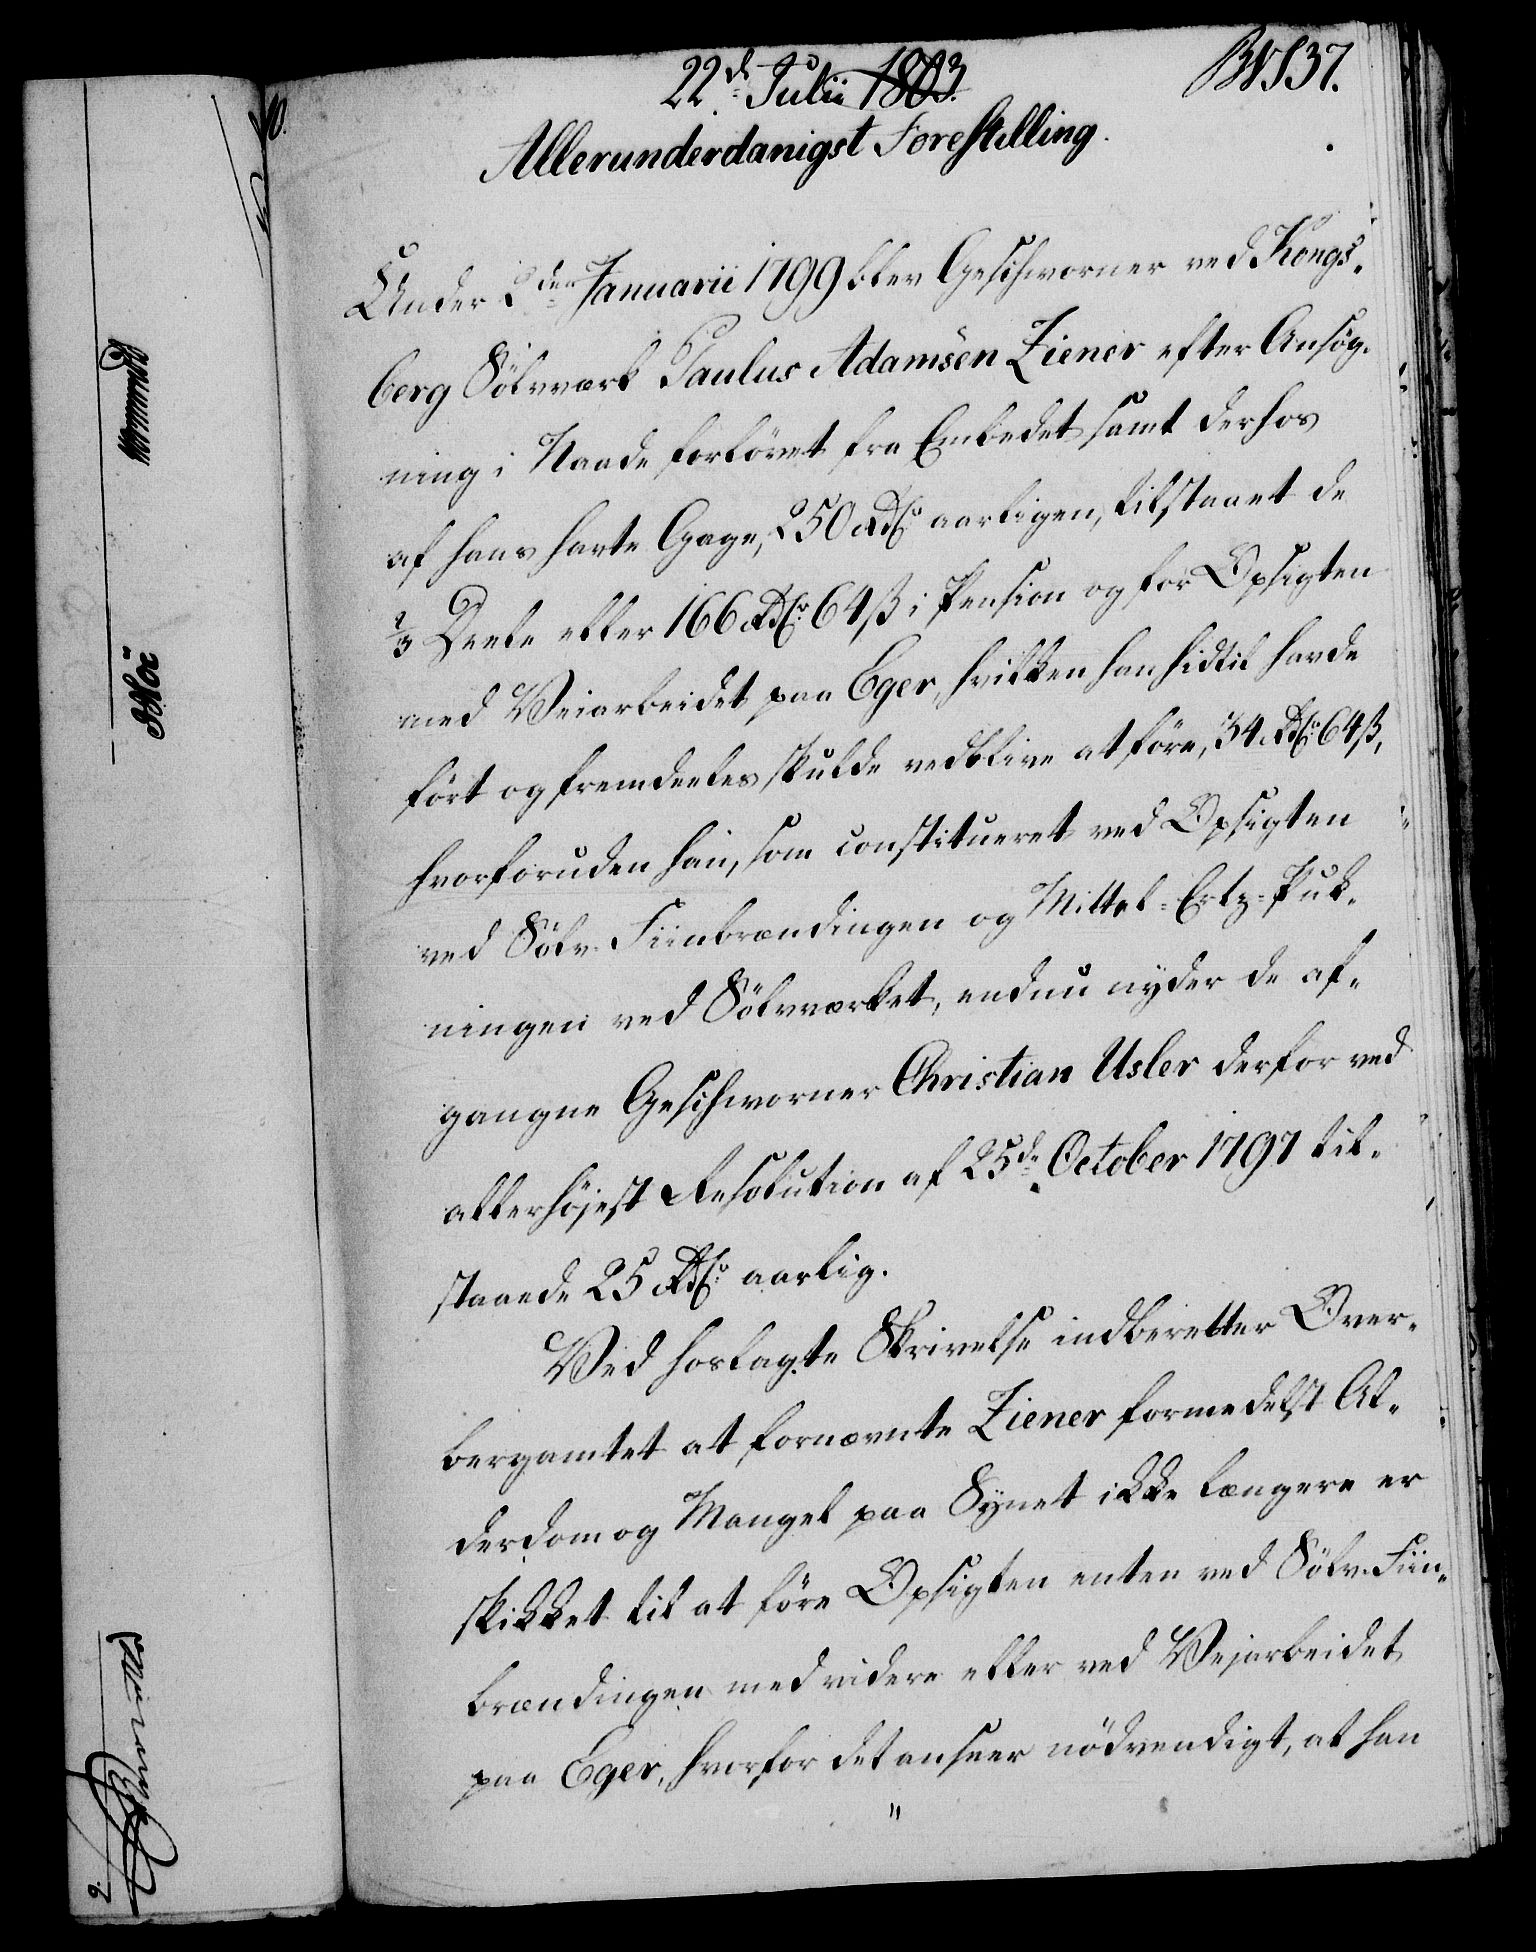 22de Julii 1803.
BN 537.
Allerunderdanigst Forestilling.
Under 2den Januarii 1799 blev Geschworner ved Kongs-
berg Sölvværk Paulus Adamsen Ziener efter Ansög-
ning i Naade forlövet fra Embedet samt derhos
af hans havte Gage, 250 Rdlr aarligen, tilstaaet de
2/3 Deele eller 166 Rdlr 64 ß i Pension og for Opsigten
med Veiarbeidet paa Eger, hvilken han hidtil havde
fört og fremdeeles skulde vedblive at före, 34 Rdlr 64 ß,
hvorforuden han, som constitueret ved Opsigten
ved Sölv-Fiinbrændingen og Mittel-Ertz-Puk-
ningen ved Sölvværket, endnu nyder de af-
gangne Geschworner Christian Usler derfor ved
allerhöjest Resolution af 25de October 1797 til-
staaede 25 Rdlr aarlig.
Ved hoslagte Skrivelse indberetter Over-
bergamtet at fornævnte Ziener formedelst Al-
derdom og Mangel paa Synet ikke længere er
skikket til at före Opsigten enten ved Sölv-Fiin-
brændingen med videre eller ved Vejarbeidet
paa Eger, hvorfor det anseer nödvendigt, at han